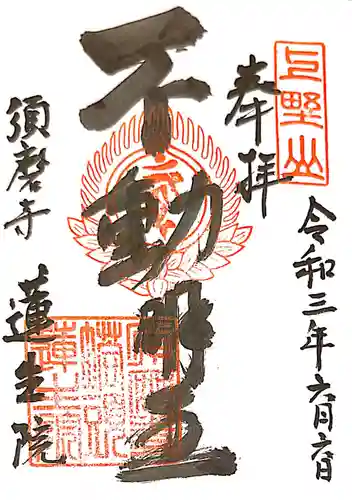 奉拝
上野山
令和三年六月六日
不動明王
須磨寺
蓮生院